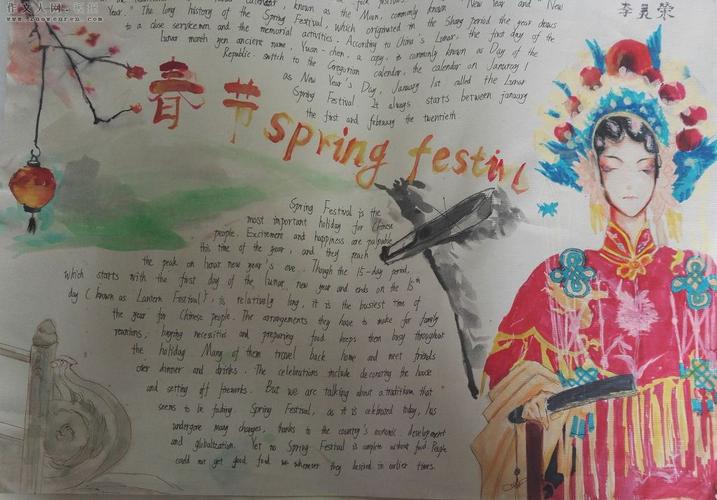 作文人网
李灵荣
known as the Nian, commonly known New Year and New
Year. The long history of the Spring Festival, which originated in the Shang period the year draws
to a close servicemen and the memorial activities. According to China's Lunar, the first day of the
lunar month yen ancient name, Yuan-chen, a copy, is commonly known as Day of the
Republic, switch to the Gregorian calendar, the calendar on January 1
as New Year's Day, January 1st called the Lunar
Spring Festival. It always starts between january
the first and february the twentieth.
春节 spring festival
Spring Festival is the
most important holiday for Chinese
people. Excitement and happiness are palpable
this time of the year, and they reach
the peak on lunar new year's eve. Though the 15-day period,
which starts with the first day of the lunar new year and ends on the 15th
day (known as Lantern Festival), is relatively long, it is the busiest time of
the year for Chinese people. The arrangements they have to make for family
reunions, buying necessities and preparing food keeps them busy throughout
the holiday. Many of them travel back home and meet friends
over dinner and drinks. The celebrations include decorating the house
and setting off fireworks. But we are talking about a tradition that
seems to be fading. Spring Festival, as it is celebrated today, has
undergone many changes, thanks to the country's economic development
and globalization. Yet no Spring Festival is complete without food. People
could not get good food as whenever they desired in earlier times.